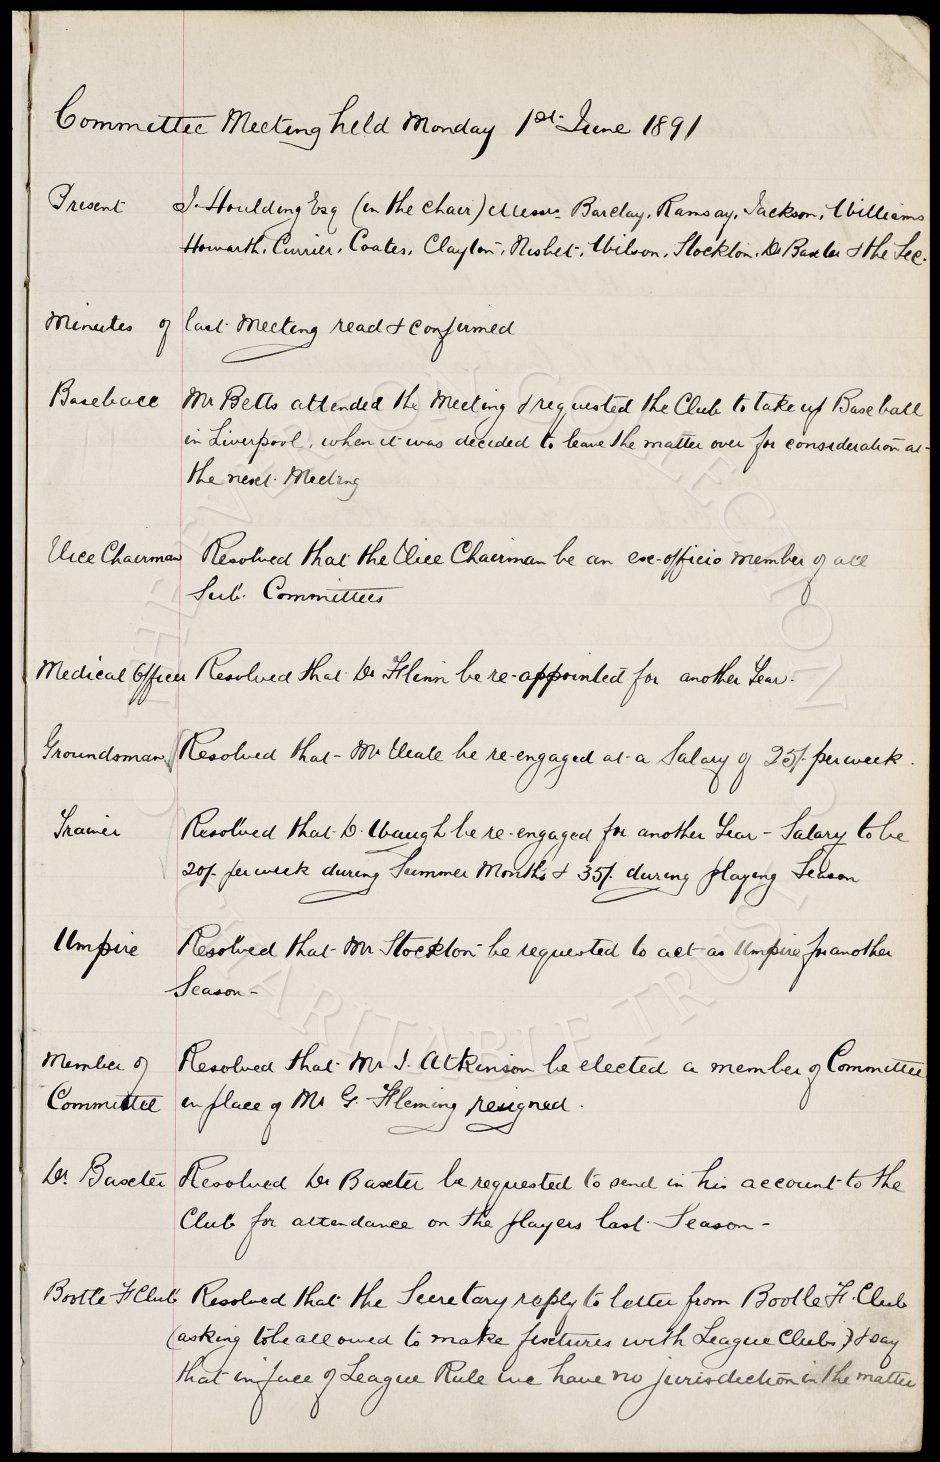 Committee Meeting held Monday 1st June 1891
Present J. Houlding Esq (in the chair) Messrs. Barclay, Ramsay, Jackson, Williams
Howarth, Currier, Coates, Clayton, Nisbet, Wilson, Stockton, Dr Baxter & the Sec.
Minutes of last Meeting read & confirmed
Baseball Mr Betts attended the Meeting & requested the Club to take up Baseball
in Liverpool, when it was decided to leave the matter over for consideration at
the next Meeting
Vice Chairman Resolved that the Vice Chairman be an ex-officio member of all
Sub. Committees
Medical Officer Resolved that Dr Flinn be re-appointed for another Year.
Groundsman Resolved that Mr be re-engaged at a Salary of 25/- per week.
Trainer Resolved that D. Waugh be re-engaged for another Year - Salary to be
20/- per week during Summer Months & 35/- during playing Season
Umpire Resolved that Mr Stockton be requested to act as Umpire for another
Season -
Member of Resolved that Mr J. Atkinson be elected a member of Committee
Committee in place of Mr G. Fleming resigned.
Dr. Baxter Resolved Dr Baxter be requested to send in his account to the
Club for attendance on the players last Season -
Bootle F Club Resolved that the Secretary reply to letter from Bootle F. Club
(asking to be allowed to make fixtures with League Clubs) & say
that in face of League Rule we have no jurisdiction in the matter
EVERTON COLLECTION
CHARITABLE TRUST